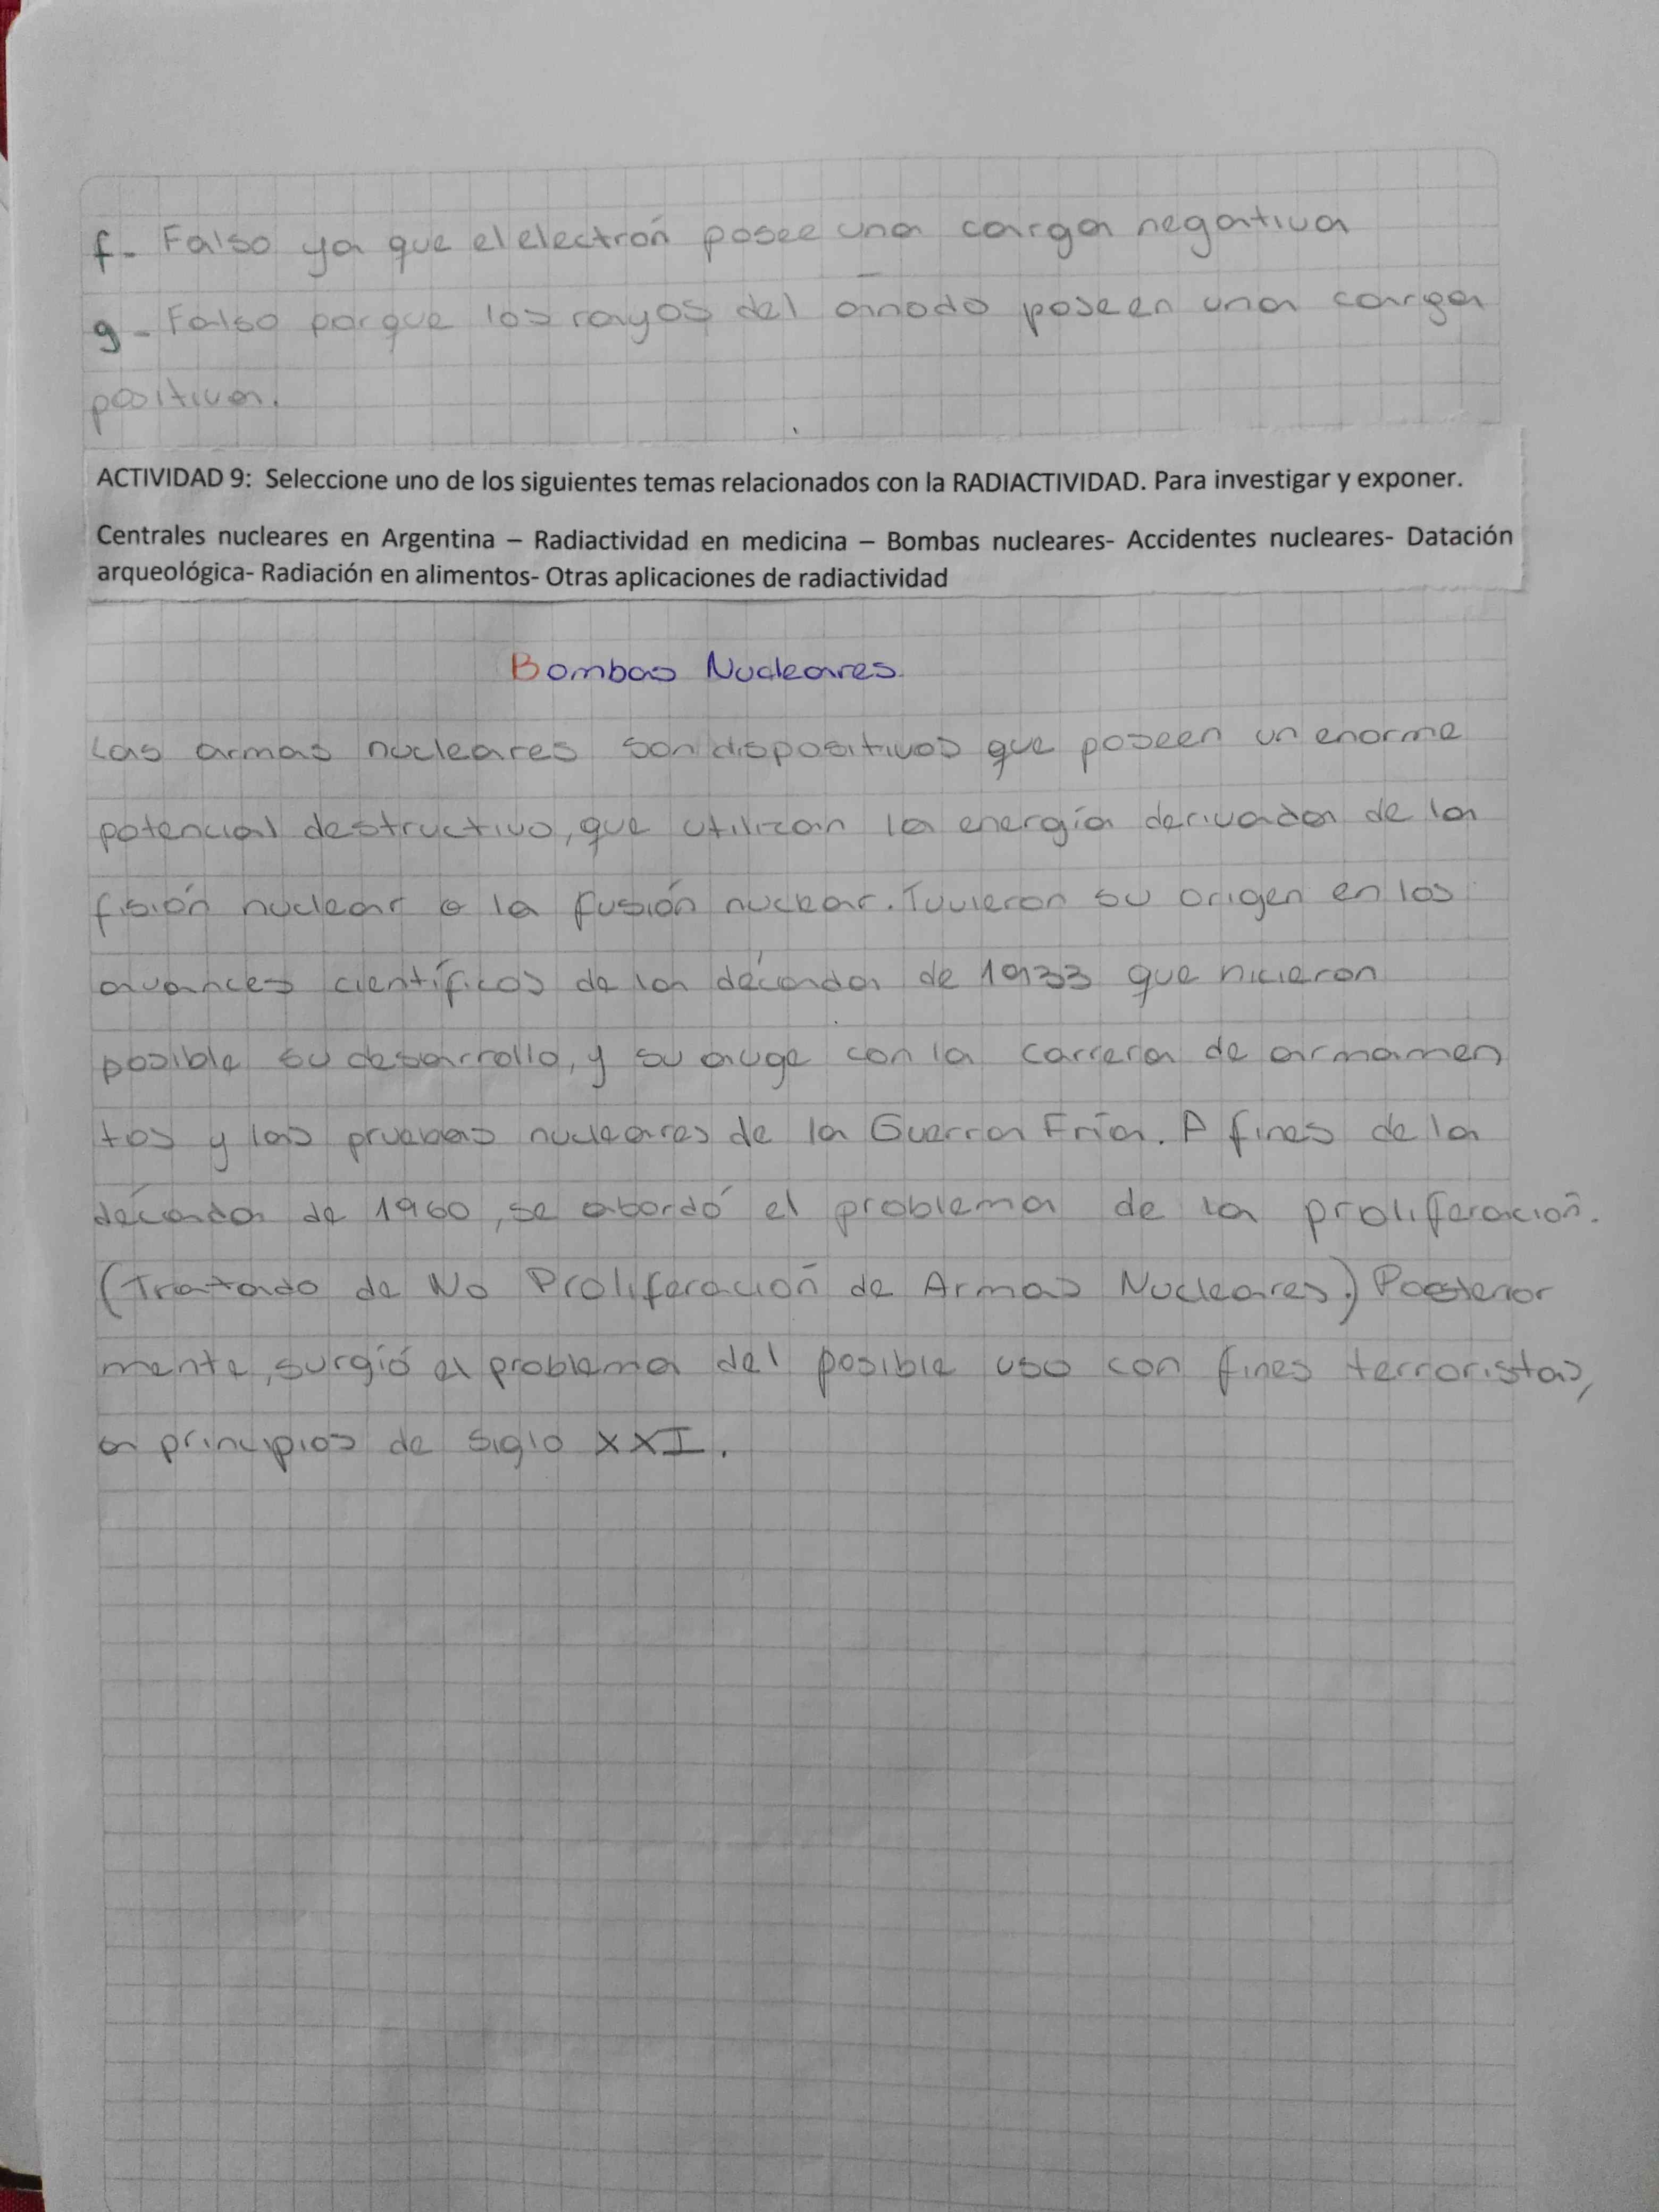 f- Falso ya que el electrón posee una carga negativa
g- Falso porque los rayos del anodo poseen una carga
positiva.
ACTIVIDAD 9: Seleccione uno de los siguientes temas relacionados con la RADIACTIVIDAD. Para investigar y exponer.
Centrales nucleares en Argentina – Radiactividad en medicina – Bombas nucleares- Accidentes nucleares- Datación
arqueológica- Radiación en alimentos- Otras aplicaciones de radiactividad
Bombas Nucleares.
Las armas nucleares son dispositivos que poseen un enorme
potencial destructivo, que utilizan la energía derivada de la
fisión nuclear o la fusión nuclear. Tuvieron su origen en los
avances científicos de la década de 1933 que hicieron
posible su desarrollo, y su auge con la carrera de armamen
tos y las pruebas nucleares de la Guerra Fría. A fines de la
década de 1960, se abordó el problema de la proliferación.
(Tratado de No Proliferación de Armas Nucleares.) Posterior
mente, surgió el problema del posible uso con fines terroristas,
a principios de siglo XXI.